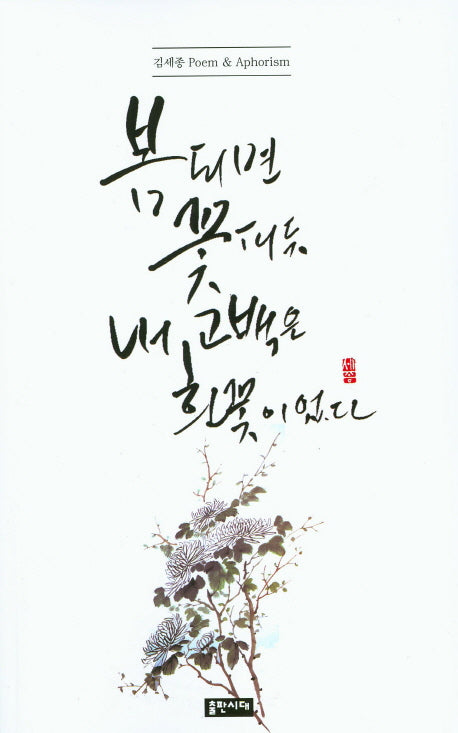 김세종 Poem & Aphorism
봄 되면
꽃 피듯
내 고백은
흰 꽃이었다
세종
출판시대